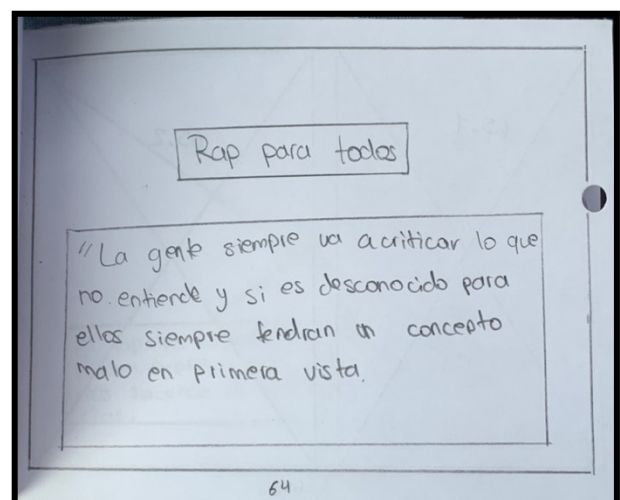 Rap para todos
"La gente siempre va a criticar lo que
no entiende y si es desconocido para
ellos siempre tendran un concepto
malo en primera vista.
64